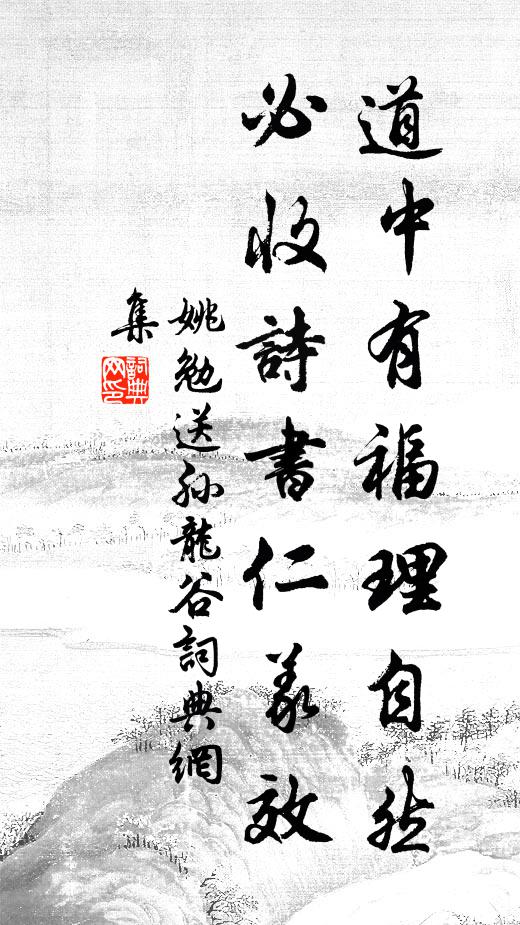 道中有福理自然
必收詩書仁義效
姚勉送孙龍谷詞典網
集
詞典
网印